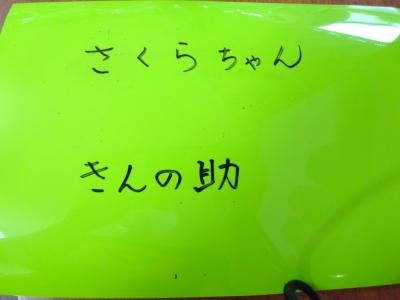 さくらちゃん
きんの助